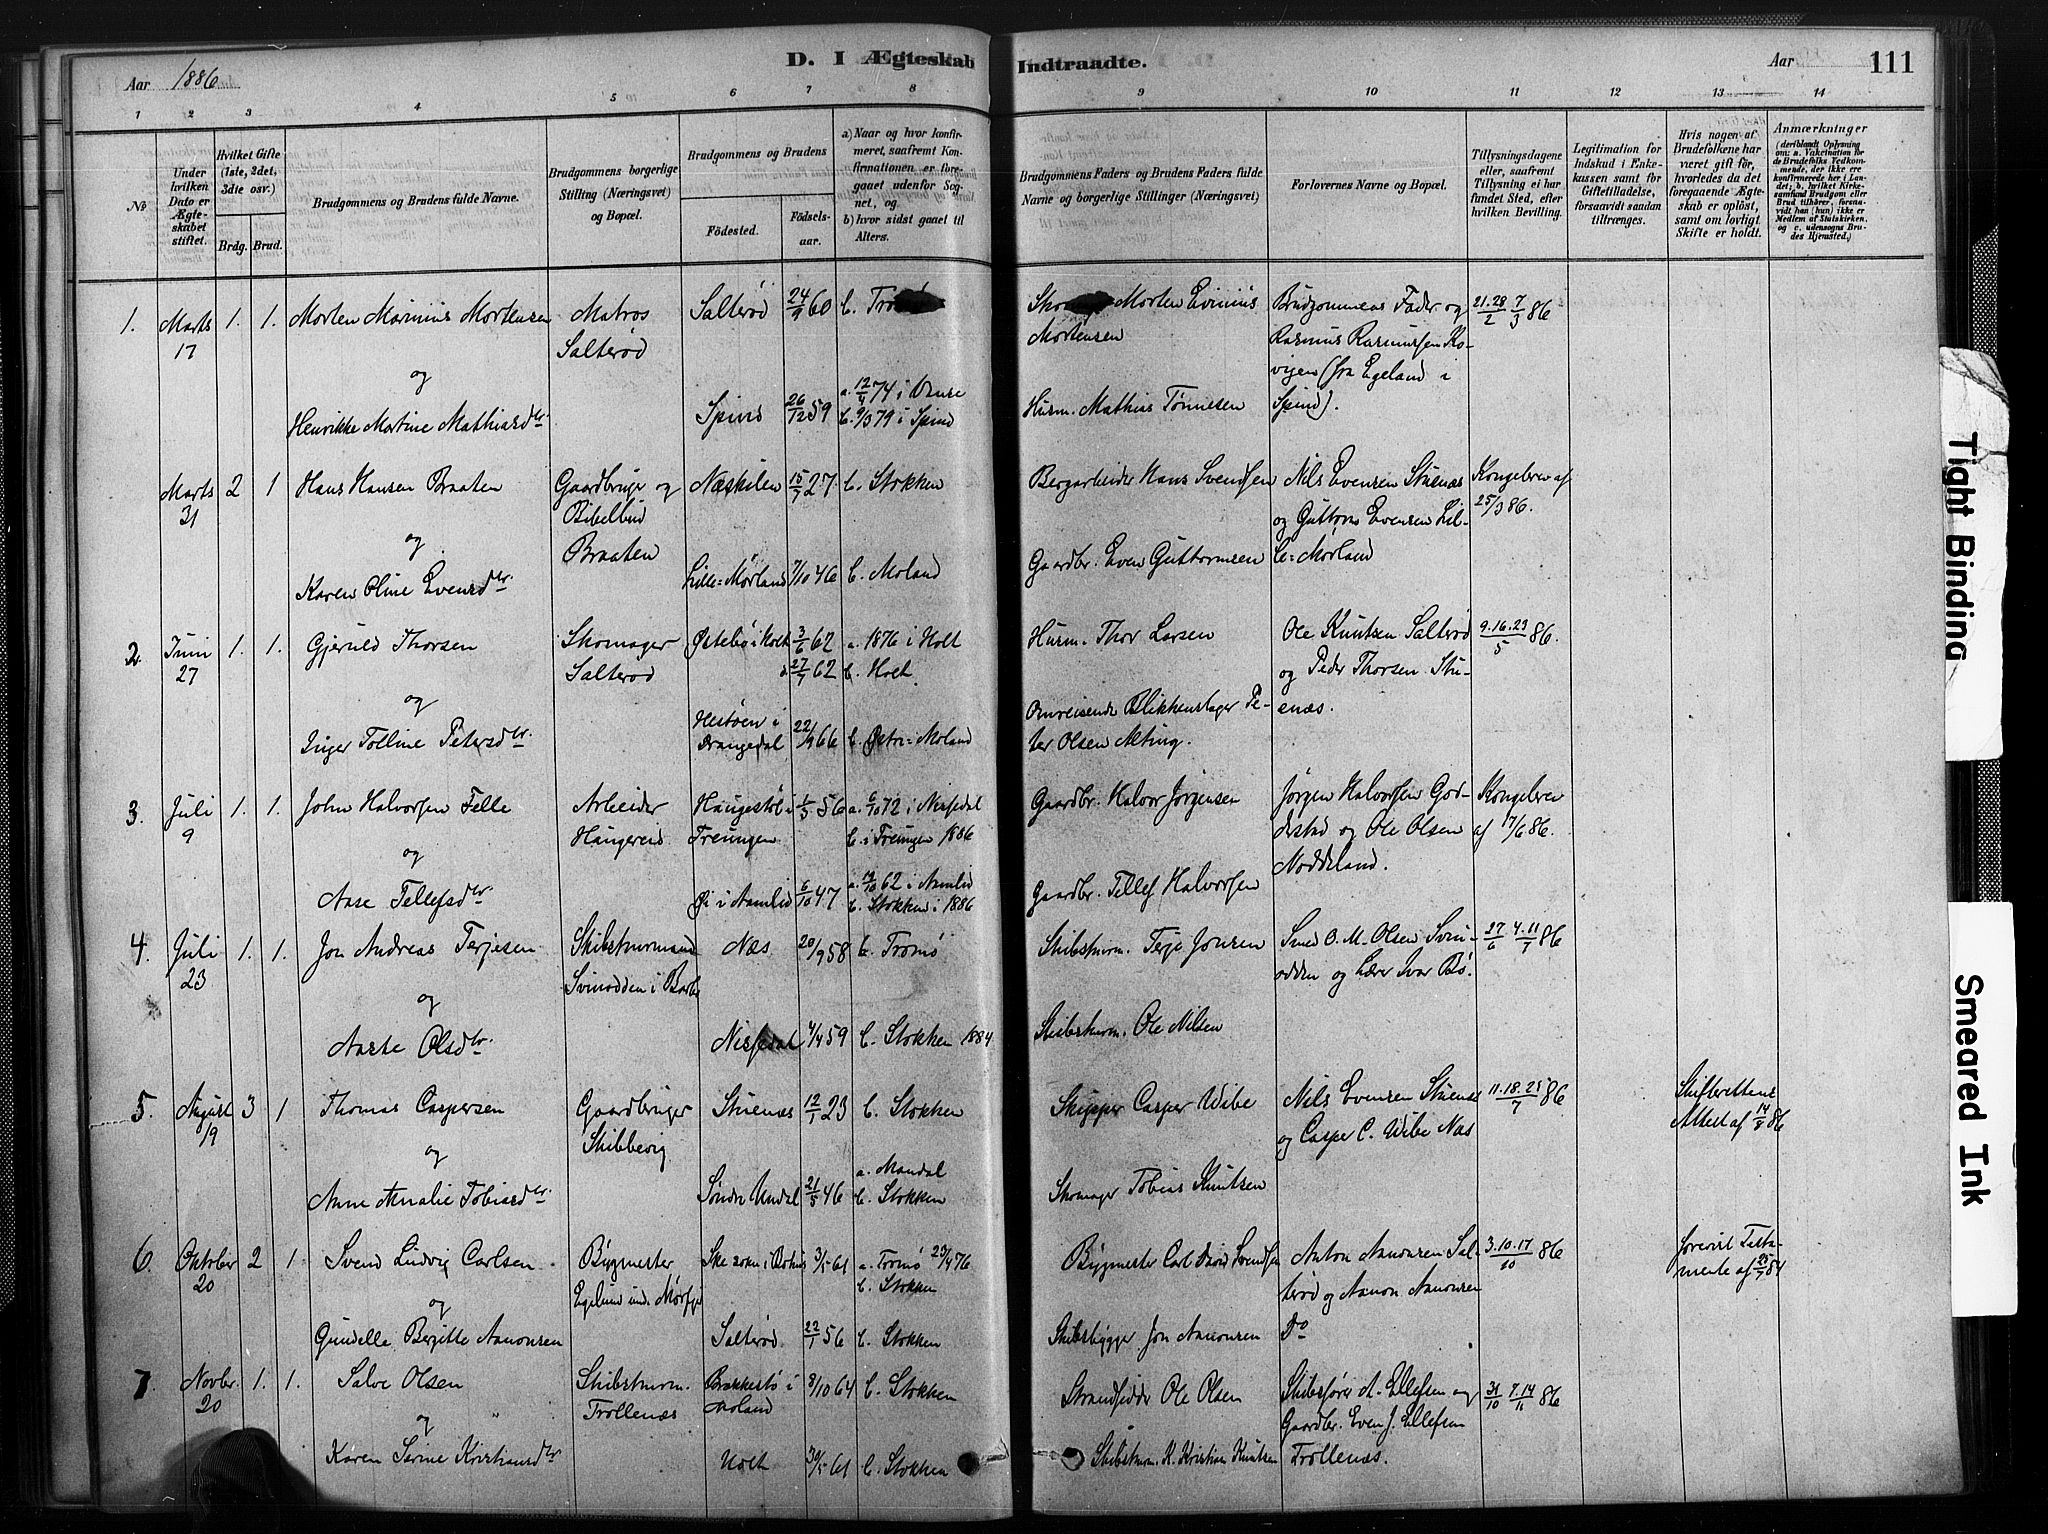 D. I Ægteskab Indtraadte.
Aar 1886
Aar
111
1 2 3 4 5 6 7 8 9 10 11 12 13 14
No
Under hvilken Dato er Ægteskabet stiftet.
Hvilket Gifte (1ste, 2det, 3die osv.)
Brdg. Brud.
Brudgommens og Brudens fulde Navne.
Brudgommens borgerlige Stilling (Næringsvei) og Bopæl.
Brudgommens og Brudens
Fødested.
Fødsels-aar.
a) Naar og hvor konfirmeret, saafremt Konfirmationen er foregaaet udenfor Sognet, og
b) hvor sidst gaaet til Alters.
Brudgommens Faders og Brudens Faders fulde Navne og borgerlige Stillinger (Næringsvei)
Forlovernes Navne og Bopæl.
Tillysningsdagene eller, saafremt Tillysning ei har fundet Sted, efter hvilken Bevilling.
Legitimation for Indskud i Enkekassen samt for Giftetilladelse, forsaavidt saadan tiltrænges.
Hvis nogen af Brudefolkene har været gift før, hvorledes da det foregaaende Ægteskab er opløst, samt om lovligt Skifte er holdt.
Anmærkninger
(deriblandt Oplysning om: a. Vakcination for de Brudefolks Vedkommende, der ikke ere konfirmerede her i Landet; b. hvilket Kirkesamfund Brudgom eller Brud tilhører, forsaavidt han (hun) ikke er Medlem af Statskirken, og c. udensogns Brudes Hjemsted.)
1. Marts 17 1. 1. Morten Marinius Mortensen Matros Salterød Salterød 24/9 60 b. Morten Evinius Mortensen Brudgommens Fader og Rasmus Rasmussen (fra Egeland i Spind). 21.28/2 7/3 86
og
Henrikke Martine Mathiasdtr Spind 26/12 59 a. 12/4 74 i b. 9/3 79 i Spind Husm. Mathias Tønnesen
Marts 31 2 1 Hans Hansen Braaten Gaardbruger og Bibelbud Braaten Næskilen 15/7 27 b. Stokken Bergarbeider Hans Svendsen Nils Evensen Stuenæs og Guttorm Evensen Lille=Mørland Kongebrev af 25/3 86.
og
Karen Oline Evensdtr. Lille=Mørland 7/10 46 b. Moland Gaardbr. Even Guttormsen
2. Juni 27 1. 1. Gjeruld Thorsen Skomager Salterød Østebø i Holt 3/6 62 27/7 62 a. 1876 i Holt b. Holt. Husm. Thor Larsen Ole Knutsen Salterød og Peder Thorsen Stuenæs. 9.16.23/5 86.
og
Inger Talline Petersdtr. i Drangedal 22/9 66 b. Østre=Moland Omreisende Blikkenslager Peter Olsen Alting.
3. Juli 9 1. 1. John Halvorsen Felle Arbeider Haugereid Haugestøl i Treungen 1/5 56 a. 6/10 72 i Nissedal b. i Treungen 1886 Gaardbr. Halvor Jørgensen Jørgen Halvorsen Goderstad og Ole Olsen Noddeland. Kongebrev af 17/6 86.
og
Aase Tellefsdtr i Aamlid 6/10 47 62 i Aamlid b. Stokken i 1886 Gaardbr. Tellef Halvorsen
4. Juli 23 1. 1. Jon Andreas Terjesen Skibstømmand Svinodden i Barbu Næs 20/9 58 b. Tromø Skibstøm. Terje Jonsen Smed O. M. Olsen Svinodden og Lærer Ivar Bø. 27/6 4.11/7 86
og
Aaste Olsdtr. Nissedal 4/4 59 b. Stokken 1884 Skibstøm. Ole Nilsen
5. August 19 3 1 Thomas Caspersen Gaardbruger Skibbevig Stuenæs 12/1 23 b. Stokken Skipper Casper Wibe Nils Evensen Stuenæs og Casper C. Wibe Næs 11.18.25/7 86 Skifterettens Attest af 14/8 86
og
Anne Amalie Tobiasdtr. Søndre Undal 21/5 46 a. Mandal b. Stokken Skomager Tobias Knutsen
6. Oktober 20 2 1 Svend Ludvig Carlsen Bygmester 3/5 61 a. Tromø 23/4 76 b. Stokken Bygmester Carl David Svendsen Anton Aanonsen Salterød og Aanon Aanonsen Do 3.10.17/10 86 forevist Testamente af 25/7 84
og
Gundelle Bergitte Aanonsen Salterød 22/1 56 b. Stokken Skibsbygger Jon Aanonsen
7. Novbr. 20 1. 1. Salve Olsen Skibstøm. Trollenæs Brækkestø i Moland 8/10 64 b. Stokken Strandsidder Ole Olsen Skibsfører A. Ellefsen og Gaardbr. Even J. Ellefsen Trollenæs. 31/10 7.14/11 86
og
Karen Serine Kristiansdtr Holt 30/5 61 b. Stokken Skibstøm. K. Kristian Knutsen
Tight Binding
Smeared Ink